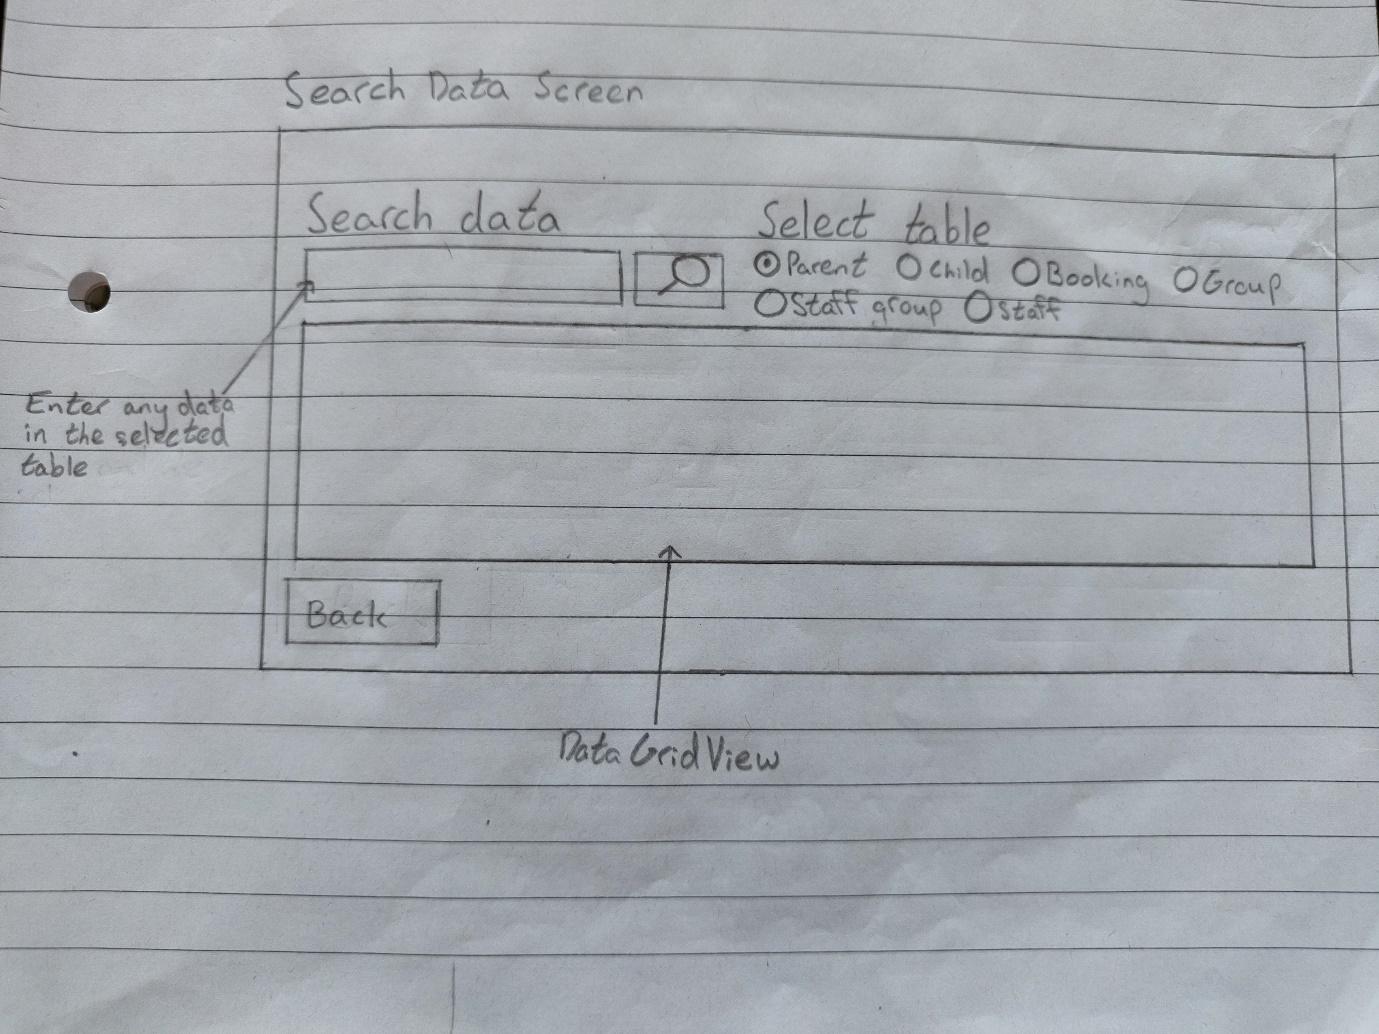 Search Data Screen
Search data
Select table
Parent Child Booking Group
Staff group Staff
Enter any data
in the selected
table
Back
DataGridView